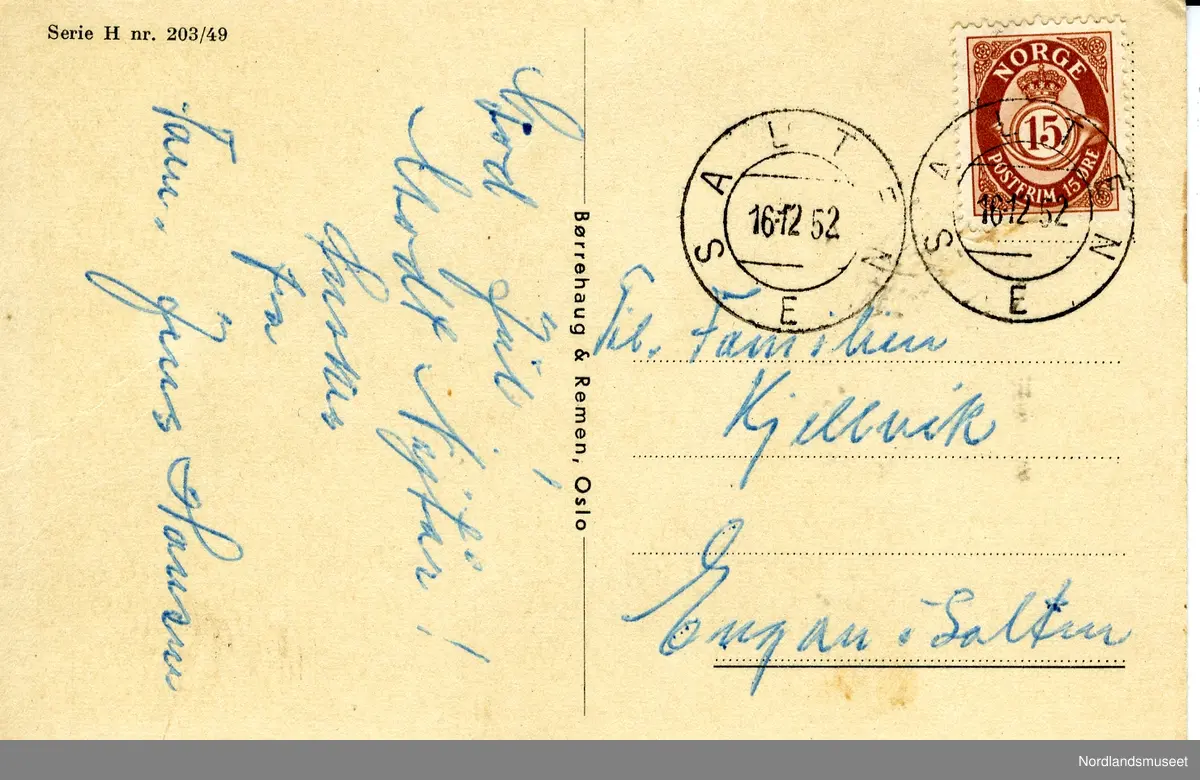 Serie H nr. 203/49
God Jul!
Godt Nyttår!
Hilsen
fra
Fam. Jens Hansen
Børrehaug & Remen, Oslo
NORGE
15
POSTFRIM. 15 ØRE
SALTENE
16-12 52
SALTENE
16-12 52
Til. Familien
Kjellvik
Engan i Salten
Nordlandsmuseet